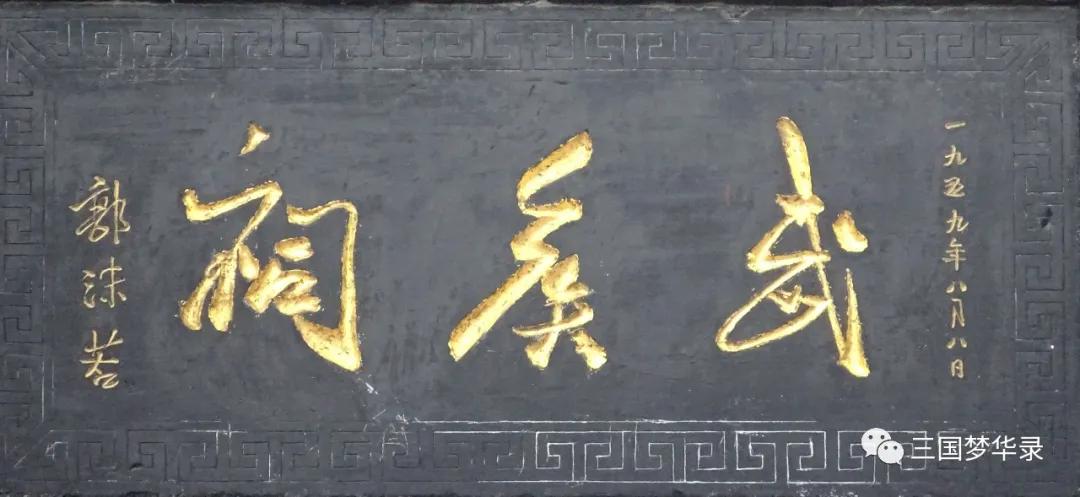 一九五九年八月八日
武侯祠
郭沫若
三国梦华录